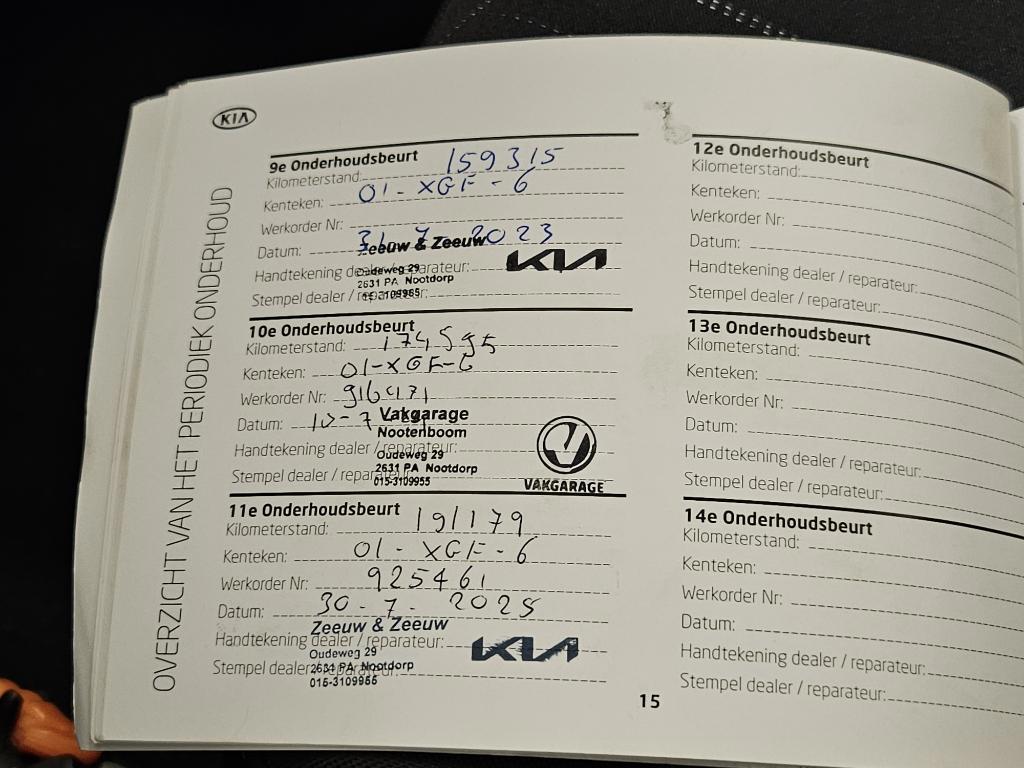 KIA
OVERZICHT VAN HET PERIODIEK ONDERHOUD
9e Onderhoudsbeurt
Kilometerstand: 159315
Kenteken: 01-XGF-6
Werkorder Nr:
Datum: 31-7-2023
Zeeuw & Zeeuw
KIA
Handtekening dealer / reparateur:
Oudeweg 29
2631 PA Nootdorp
Stempel dealer / reparateur:
015-3109955
10e Onderhoudsbeurt
Kilometerstand: 174595
Kenteken: 01-XGF-6
Werkorder Nr: 916471
Datum: 10-7
Vakgarage
Nootenboom
Handtekening dealer / reparateur:
Oudeweg 29
2631 PA Nootdorp
Stempel dealer / reparateur:
015-3109955
VAKGARAGE
11e Onderhoudsbeurt
Kilometerstand: 191179
Kenteken: 01-XGF-6
Werkorder Nr: 925461
Datum: 30-7-2025
Zeeuw & Zeeuw
KIA
Handtekening dealer / reparateur:
Oudeweg 29
2631 PA Nootdorp
Stempel dealer / reparateur:
015-3109955
12e Onderhoudsbeurt
Kilometerstand:
Kenteken:
Werkorder Nr:
Datum:
Handtekening dealer / reparateur:
Stempel dealer / reparateur:
13e Onderhoudsbeurt
Kilometerstand:
Kenteken:
Werkorder Nr:
Datum:
Handtekening dealer / reparateur:
Stempel dealer / reparateur:
14e Onderhoudsbeurt
Kilometerstand:
Kenteken:
Werkorder Nr:
Datum:
Handtekening dealer / reparateur:
Stempel dealer / reparateur:
15